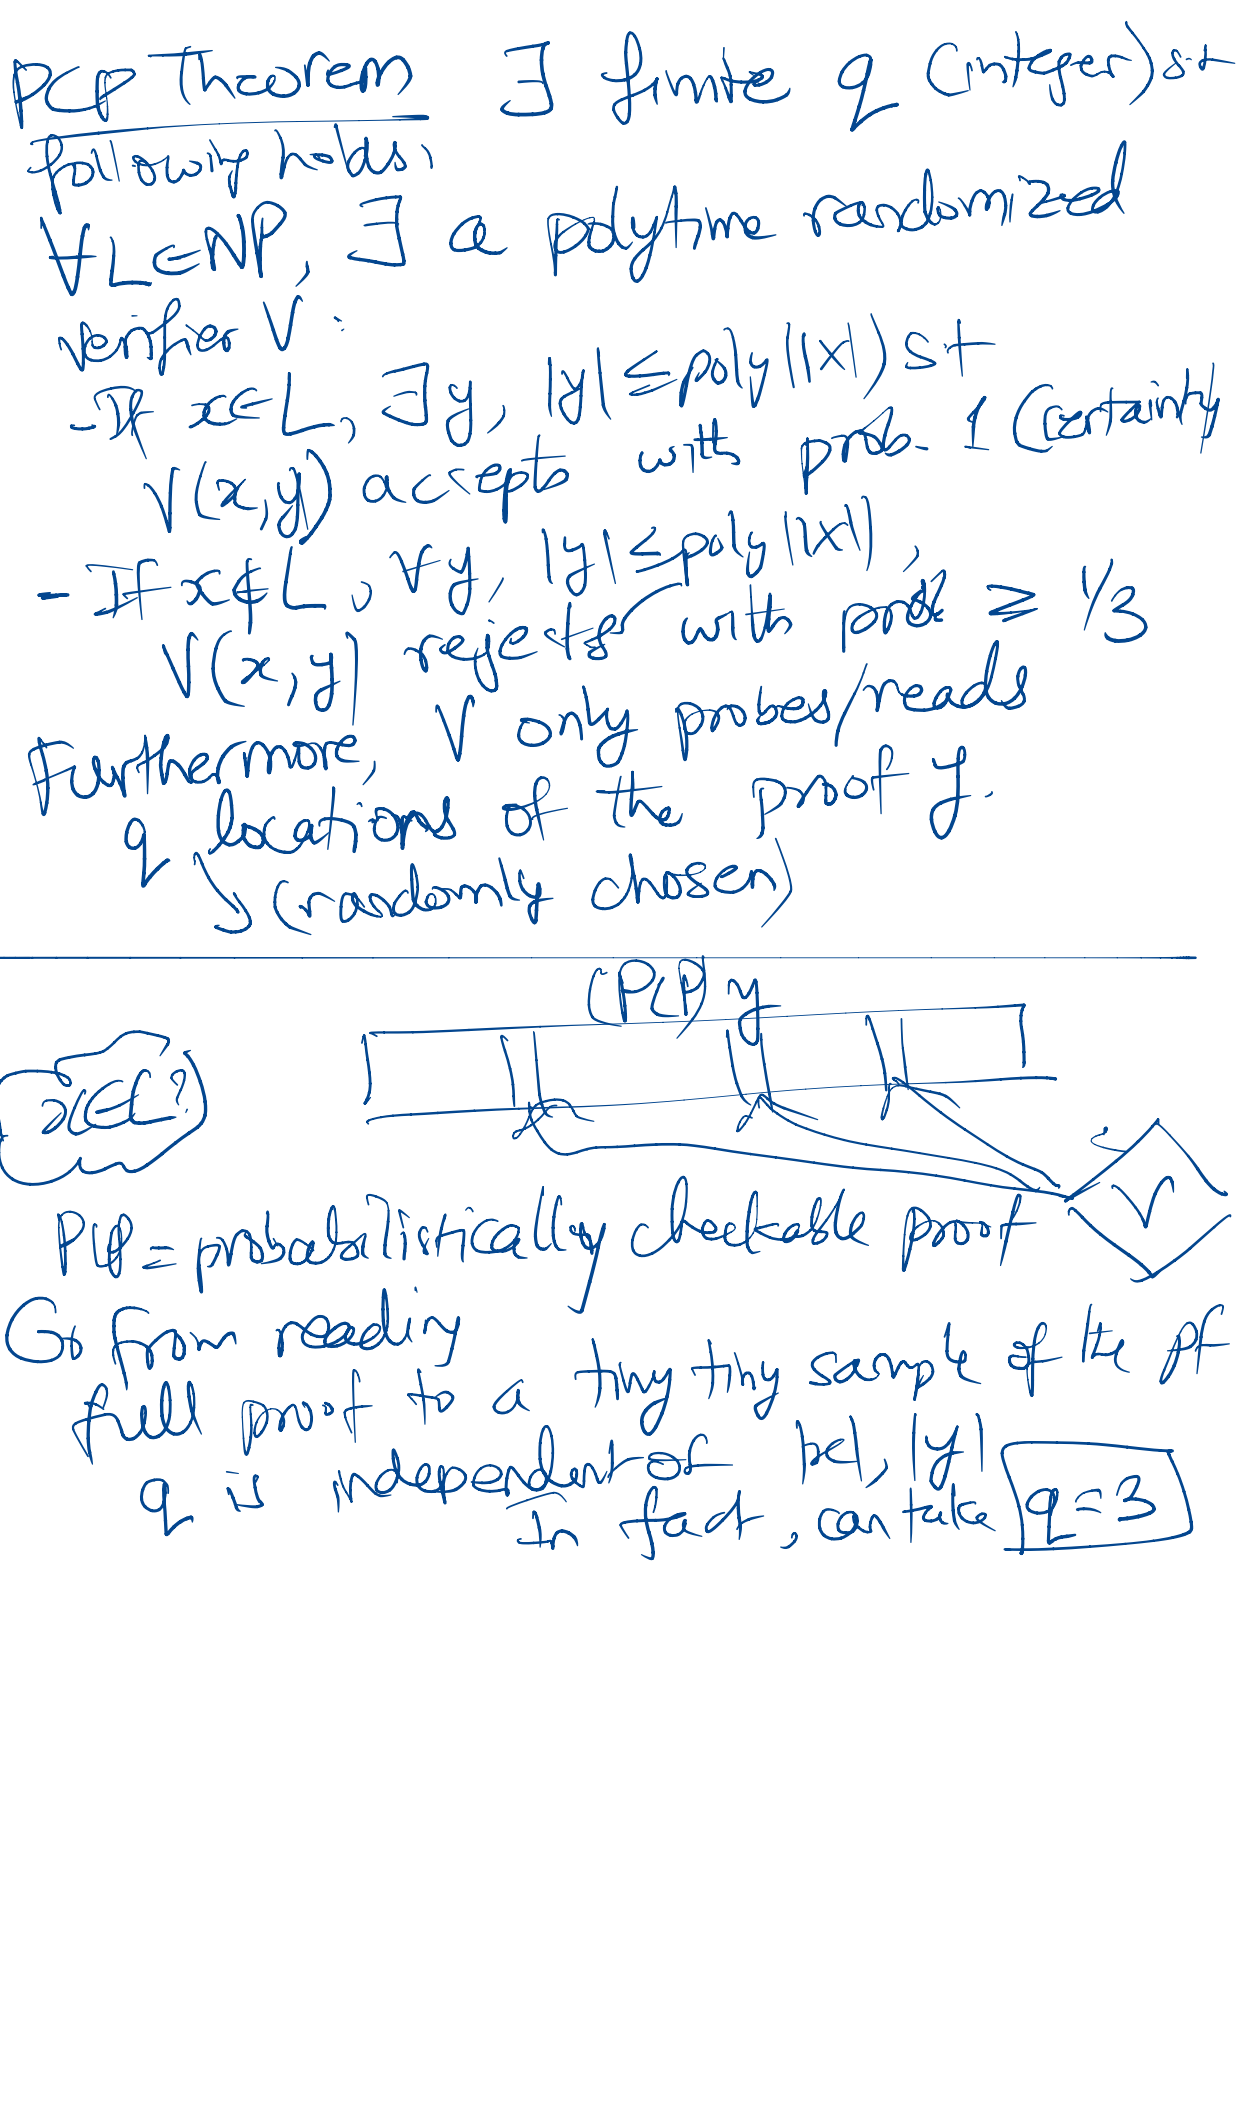 PCP Theorem ∃ finite q (integer) s.t
following holds,
∀L∈NP, ∃ a polytime randomized
verifier V:
- If x∈L, ∃y, |y|≤poly(|x|) s.t
V(x,y) accepts with prob. 1 (certainty
- If x∉L, ∀y, |y|≤poly(|x|),
V(x,y) rejects with prob ≥ 1/3
Furthermore, V only probes/reads
q locations of the proof y.
↳ (randomly chosen)
(PCP) y
x∈L?
V
PCP = probabilistically checkable proof
Go from reading
full proof to a tiny tiny sample of the pf
q is independent of |x|, |y|
In fact, can take q=3